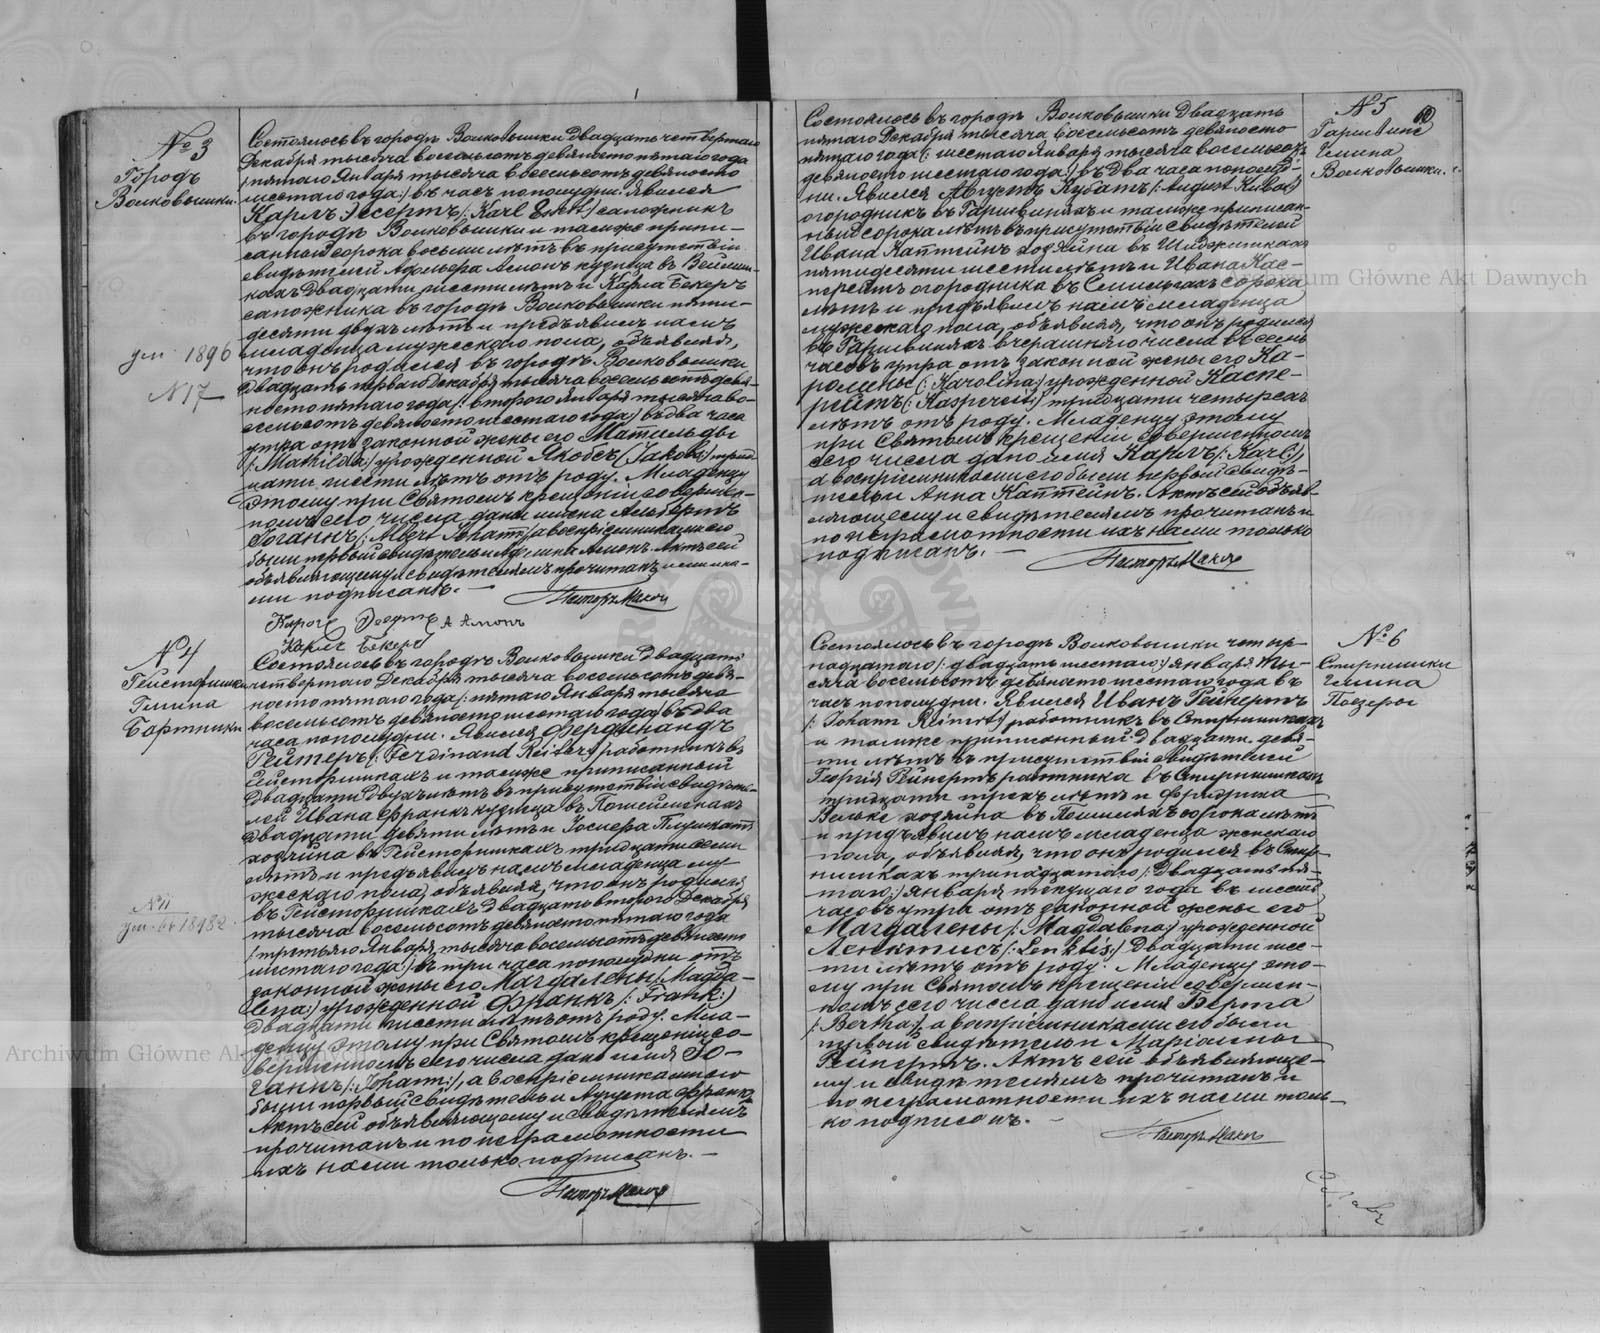 № 3
Городъ
Волковышки.
Состоялось въ городѣ Волковышки двадцать четвертаго
Декабря тысяча восемьсотъ девяносто пятаго года
/:пятаго Января тысяча восемьсотъ девяносто
шестаго года:/ въ часъ пополудни. Явился
Карлъ Эссертъ /: Karl Essert:/ сапожникъ
въ городѣ Волковышки и тамже припи-
санный сорока восьми лѣтъ въ присутствіи
свидѣтелей Адольфа Амонъ кузнеца въ
кахъ двадцати шести лѣтъ и Карла Бекеръ
сапожника въ городѣ Волковышки пяти-
десяти двухъ лѣтъ и предъявилъ намъ
младенца мужескаго пола, объявляя,
что онъ родился въ городѣ Волковышки
двадцать перваго Декабря тысяча восемьсотъ девя-
носто пятаго года /: втораго Января тысяча во-
семьсотъ девяносто шестаго года:/ въ два часа
утра отъ законной жены его Матильды
/: Mathilda:/ урожденной Якобсъ (Jakobs) трид-
цати шести лѣтъ отъ роду. Младенцу
этому при Святомъ крещеніи совершен-
номъ сего числа даны имена Альбертъ
Іоганнъ /: Albert Johann:/ а воспріемниками его
были первый свидѣтель и Амонъ. Актъ сей
объявляющему и свидѣтелямъ прочитанъ и ими и на-
ми подписанъ. —
Пасторъ
Карлъ Эссертъ А Амонъ
Карлъ Бекеръ
ум. 1896
№ 17
№ 4
Гейсторишки
Гмина
Бартники
Состоялось въ городѣ Волковышки двадцать
четвертаго Декабря тысяча восемьсотъ девя-
носто пятаго года /: пятаго Января тысяча
восемьсотъ девяносто шестаго года:/ въ два
часа пополудни. Явился Фердинандъ
Рейтеръ /: Ferdinand Reiter:/ работникъ въ
Гейсторишкахъ и тамже приписанный
двадцати двухъ лѣтъ въ присутствіи свидѣте-
лей Ивана Франкъ кузнеца въ
двадцати девяти лѣтъ и Іосифа
хозяина въ Гейсторишкахъ тридцати семи
лѣтъ и предъявилъ намъ младенца му-
жескаго пола, объявляя, что онъ родился
въ Гейсторишкахъ двадцать втораго Декабря
тысяча восемьсотъ девяносто пятаго года
/: третьяго Января тысяча восемьсотъ девяносто
шестаго года:/ въ три часа пополудни отъ
законной жены его Магдалены /: Magda-
lena:/ урожденной Франкъ /: Frank:/
двадцати шести лѣтъ отъ роду. Мла-
денцу этому при Святомъ крещеніи со-
вершенномъ сего числа дано имя Іо-
ганнъ /: Johann:/, а воспріемниками его
были первый свидѣтель и Августа Франкъ.
Актъ сей объявляющему и свидѣтелямъ
прочитанъ и по неграмотности
ихъ нами только подписанъ. —
Пасторъ
№ 11
ум.
№ 5
Гмина
Волковышки.
Состоялось въ городѣ Волковышки двадцать
пятаго Декабря тысяча восемьсотъ девяносто
пятаго года /: шестаго Января тысяча восемьсотъ
девяносто шестаго года:/ въ два часа пополуд-
ни. Явился Августъ Кубатъ /: August Kubat:/
огородникъ въ и тамже приписан-
ный сорока лѣтъ въ присутствіи свидѣтелей
Ивана Каптейнъ хозяина въ
пятидесяти шести лѣтъ и Ивана Кас-
перейтъ огородника въ сорока
лѣтъ и предъявилъ намъ младенца
мужескаго пола, объявляя, что онъ родился
въ вчерашняго числа въ семь
часовъ утра отъ законной жены его Ка-
ролины /: Karolina:/ урожденной Каспе-
рейтъ /: Kaspereit:/ тридцати четырехъ
лѣтъ отъ роду. Младенцу этому
при Святомъ крещеніи совершенномъ
сего числа дано имя Карлъ /: Karl:/,
а воспріемниками его были первый свидѣ-
тель и Анна Каптейнъ. Актъ сей объяв-
ляющему и свидѣтелямъ прочитанъ и
по неграмотности ихъ нами только
подписанъ. —
Пасторъ
№ 6
Спирпишки
Гмина
Поезеры
Состоялось въ городѣ Волковышки четыр-
надцатаго /: двадцать шестаго:/ января ты-
сяча восемьсотъ девяносто шестаго года въ
часъ пополудни. Явился Иванъ Рейнертъ
/: Johann Reinert:/ работникъ въ
и тамже приписанный двадцати девя-
ти лѣтъ въ присутствіи свидѣтелей
Георгія Рейнертъ работника въ
тридцати трехъ лѣтъ и Фридриха
хозяина въ сорока лѣтъ
и предъявилъ намъ младенца женскаго
пола, объявляя, что онъ родился въ Спир-
пишкахъ тринадцатаго /: двадцать пя-
таго:/ января текущаго года въ шесть
часовъ утра отъ законной жены его
Магдалены /: Magdalena:/ урожденной
Ленктисъ /: Lenktis:/ двадцати шес-
ти лѣтъ отъ роду. Младенцу это-
му при Святомъ крещеніи совершен-
номъ сего числа дано имя Берта
/: Bertha:/, а воспріемниками его были
первый свидѣтель и Маріанна
Рейнертъ. Актъ сей объявляюще-
му и свидѣтелямъ прочитанъ и
по неграмотности ихъ нами толь-
ко подписанъ. —
Пасторъ
Archiwum Główne Akt Dawnych
Archiwum Główne Akt Dawnych